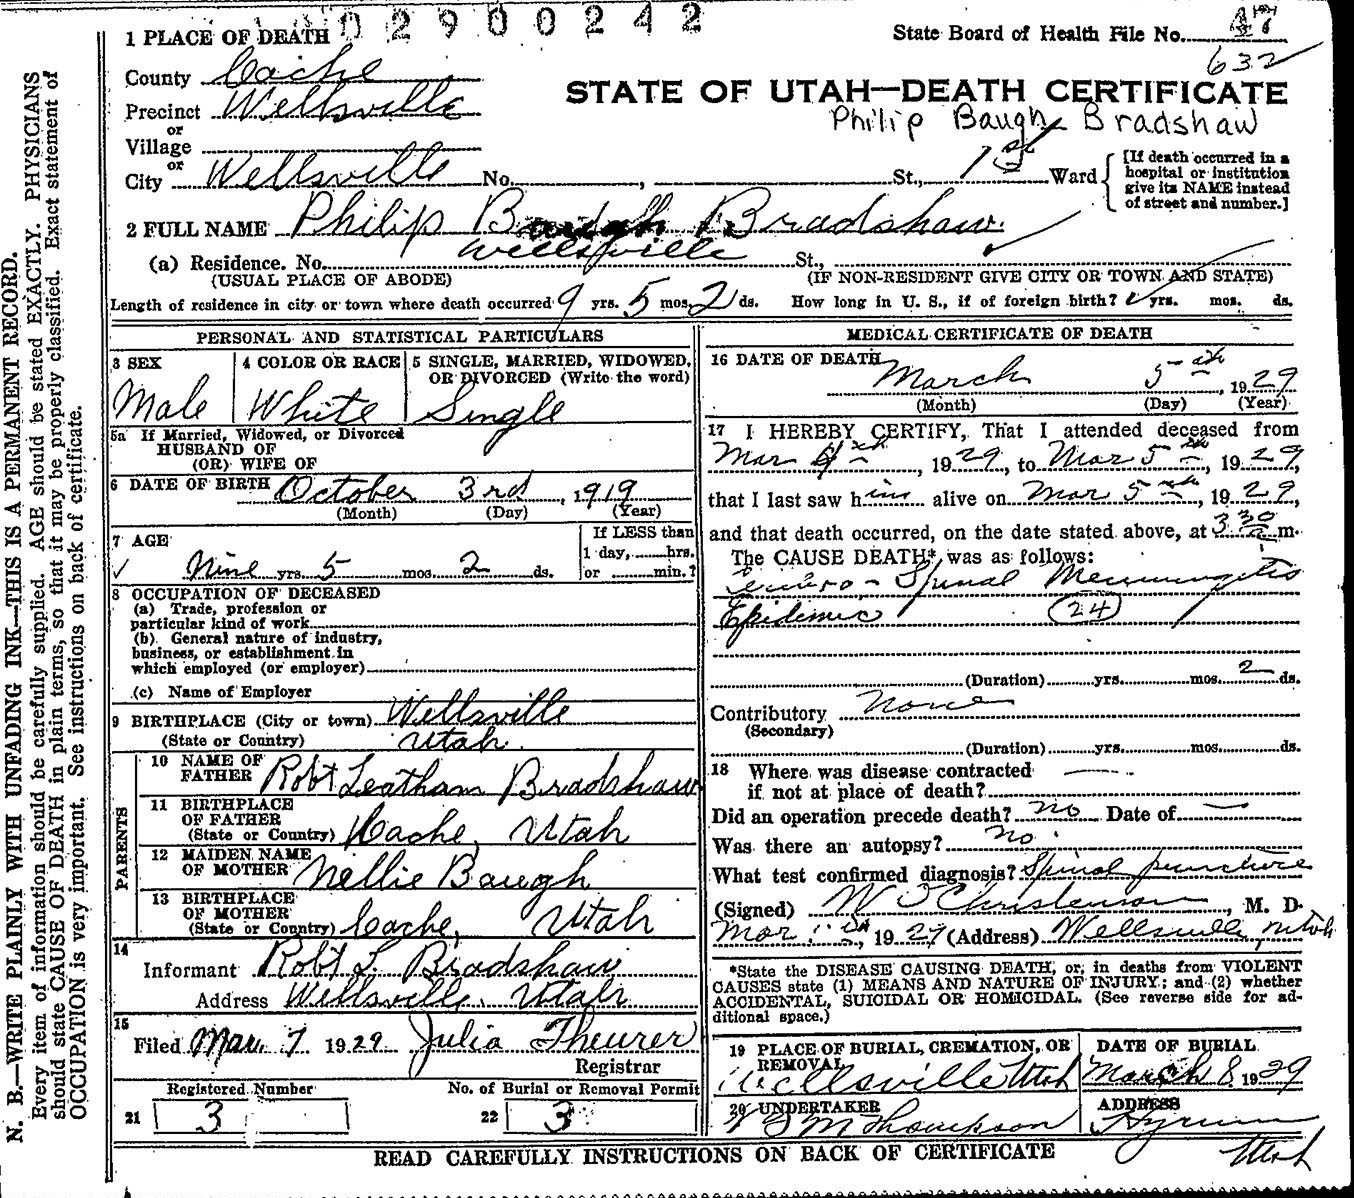 02900242
State Board of Health File No. 47
632
1 PLACE OF DEATH
County Cache
Precinct Wellsville
or
Village
or
City Wellsville No. , St., 1st Ward
[If death occurred in a hospital or institution give its NAME instead of street and number.]
STATE OF UTAH—DEATH CERTIFICATE
Philip Baugh Bradshaw
2 FULL NAME Philip Baugh Bradshaw
(a) Residence. No. Wellsville St.,
(USUAL PLACE OF ABODE) (IF NON-RESIDENT GIVE CITY OR TOWN AND STATE)
Length of residence in city or town where death occurred 9 yrs. 5 mos. 2 ds. How long in U. S., if of foreign birth? yrs. mos. ds.
PERSONAL AND STATISTICAL PARTICULARS
3 SEX
Male
4 COLOR OR RACE
White
5 SINGLE, MARRIED, WIDOWED,
OR DIVORCED (Write the word)
Single
5a If Married, Widowed, or Divorced
HUSBAND OF
(OR) WIFE OF
6 DATE OF BIRTH October 3rd, 1919
(Month) (Day) (Year)
7 AGE
Nine yrs 5 mos 2 ds.
If LESS than
1 day, hrs.
or min.?
8 OCCUPATION OF DECEASED
(a) Trade, profession or
particular kind of work
(b). General nature of industry,
business, or establishment in
which employed (or employer)
(c) Name of Employer
9 BIRTHPLACE (City or town) Wellsville
(State or Country) Utah.
PARENTS
10 NAME OF
FATHER Robt Leatham Bradshaw
11 BIRTHPLACE
OF FATHER
(State or Country) Cache, Utah
12 MAIDEN NAME
OF MOTHER Nellie Baugh
13 BIRTHPLACE
OF MOTHER
(State or Country) Cache, Utah
14
Informant Robt L. Bradshaw
Address Wellsville, Utah
15
Filed Mar. 7 1929 Julia Theurer
Registrar
Registered Number
21 3
No. of Burial or Removal Permit
22 3
MEDICAL CERTIFICATE OF DEATH
16 DATE OF DEATH
March 5th, 1929
(Month) (Day) (Year)
17 I HEREBY CERTIFY, That I attended deceased from
Mar 4th, 1929, to Mar 5th, 1929,
that I last saw him alive on Mar 5th, 1929,
and that death occurred, on the date stated above, at 3 30 m.
The CAUSE DEATH* was as follows:
Cerebro-Spinal Meningitis
Epidemic (24)
(Duration) yrs. mos. 2 ds.
Contributory None
(Secondary)
(Duration) yrs. mos. ds.
18 Where was disease contracted
if not at place of death?
Did an operation precede death? no Date of
Was there an autopsy? no.
What test confirmed diagnosis? Spinal puncture
(Signed) W O Christensen, M. D.
Mar , 1929 (Address) Wellsville, Utah
*State the DISEASE CAUSING DEATH, or, in deaths from VIOLENT
CAUSES state (1) MEANS AND NATURE OF INJURY; and (2) whether
ACCIDENTAL, SUICIDAL OR HOMICIDAL. (See reverse side for ad-
ditional space.)
19 PLACE OF BURIAL, CREMATION, OR
REMOVAL
Wellsville Utah
DATE OF BURIAL
March 8 1929
20 UNDERTAKER
Thompson
ADDRESS
Hyrum
Utah
READ CAREFULLY INSTRUCTIONS ON BACK OF CERTIFICATE
N. B.—WRITE PLAINLY WITH UNFADING INK—THIS IS A PERMANENT RECORD.
Every item of information should be carefully supplied. AGE should be stated EXACTLY. PHYSICIANS
should state CAUSE OF DEATH in plain terms, so that it may be properly classified. Exact statement of
OCCUPATION is very important. See instructions on back of certificate.